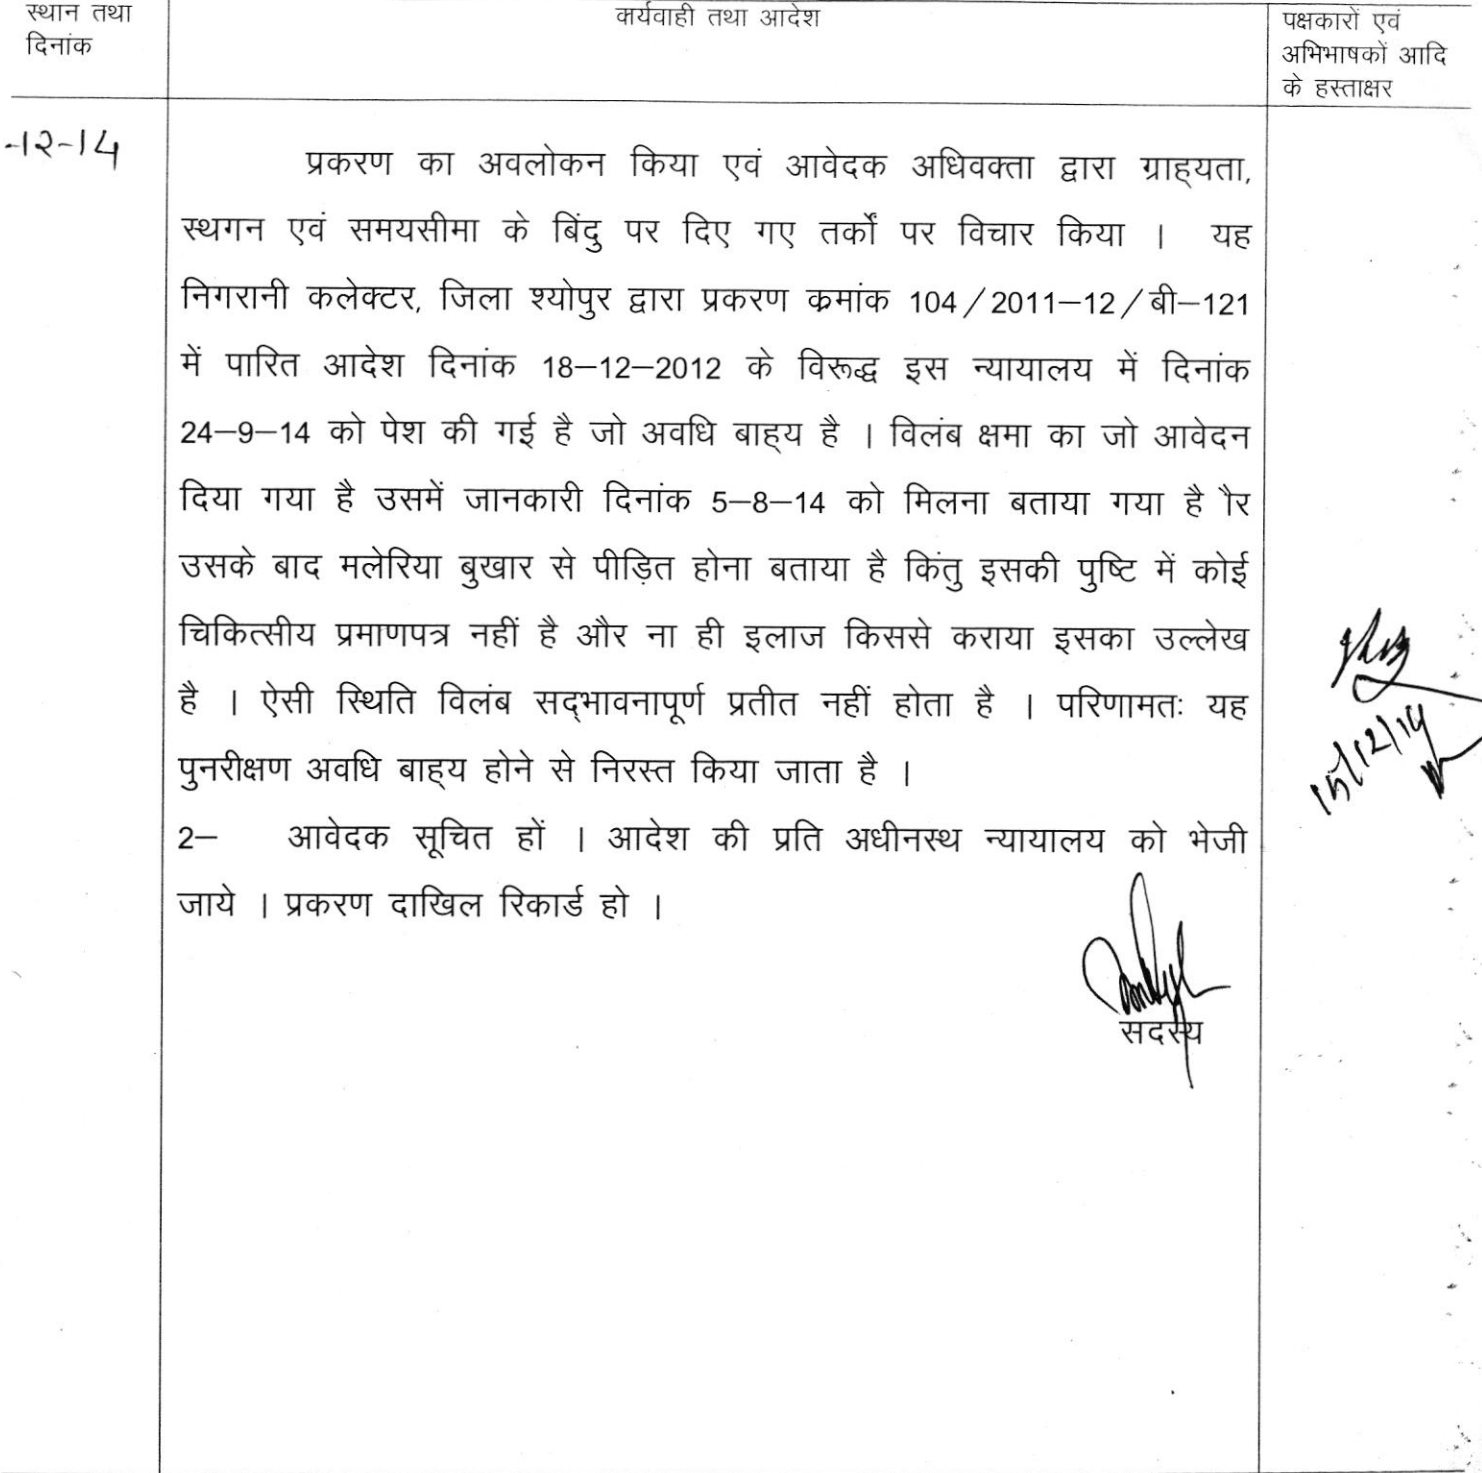 स्थान तथा
दिनांक
कार्यवाही तथा आदेश
पक्षकारों एवं
अभिभाषकों आदि
के हस्ताक्षर
-12-14
प्रकरण का अवलोकन किया एवं आवेदक अधिवक्ता द्वारा ग्राह्यता,
स्थगन एवं समयसीमा के बिंदु पर दिए गए तर्कों पर विचार किया । यह
निगरानी कलेक्टर, जिला श्योपुर द्वारा प्रकरण क्रमांक 104/2011–12/बी–121
में पारित आदेश दिनांक 18–12–2012 के विरूद्ध इस न्यायालय में दिनांक
24–9–14 को पेश की गई है जो अवधि बाह्य है । विलंब क्षमा का जो आवेदन
दिया गया है उसमें जानकारी दिनांक 5–8–14 को मिलना बताया गया है ैर
उसके बाद मलेरिया बुखार से पीड़ित होना बताया है किंतु इसकी पुष्टि में कोई
चिकित्सीय प्रमाणपत्र नहीं है और ना ही इलाज किससे कराया इसका उल्लेख
है । ऐसी स्थिति विलंब सद्भावनापूर्ण प्रतीत नहीं होता है । परिणामतः यह
पुनरीक्षण अवधि बाह्य होने से निरस्त किया जाता है ।
2– आवेदक सूचित हों । आदेश की प्रति अधीनस्थ न्यायालय को भेजी
जाये । प्रकरण दाखिल रिकार्ड हो ।
15/12/14
सदस्य